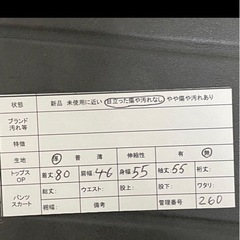 状態 新品 未使用に近い 目立った傷や汚れなし やや傷や汚れあり
ブランド 汚れ等
特徴
生地 厚 普 薄 伸縮性 有 無
トップス OP 着丈 80 肩幅 46 身幅 55 袖丈 55 裄丈
パンツ スカート 総丈 ウエスト 股上 股下 ワタリ
裾幅 備考 管理番号 260